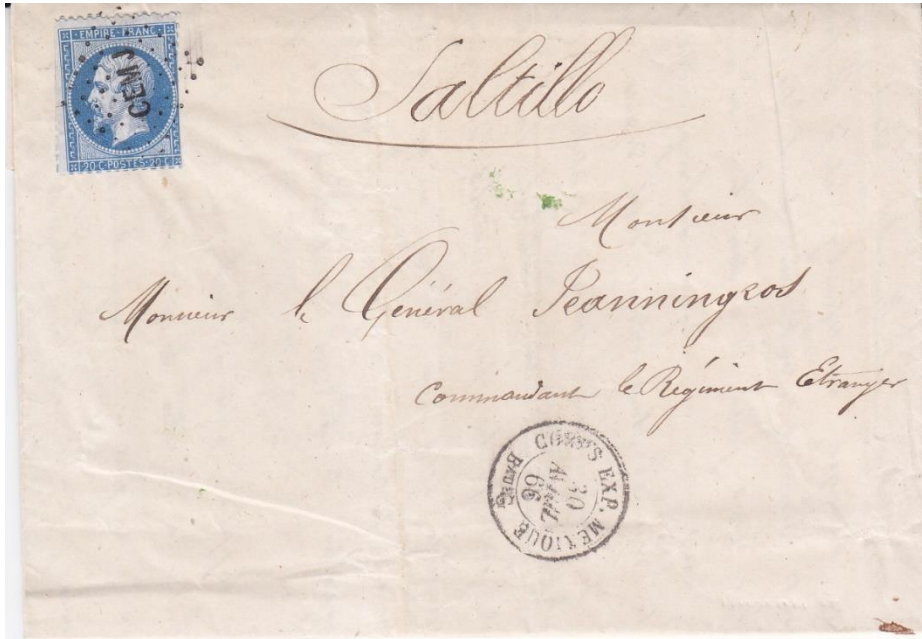 EMPIRE·FRANC·
CEM
20·C·POSTES·20·C
Saltillo
Monsieur
Monsieur le Général Jeanningros
Commandant le Régiment Etranger
CORPS EXP. MEXIQUE
30
AVRIL
66